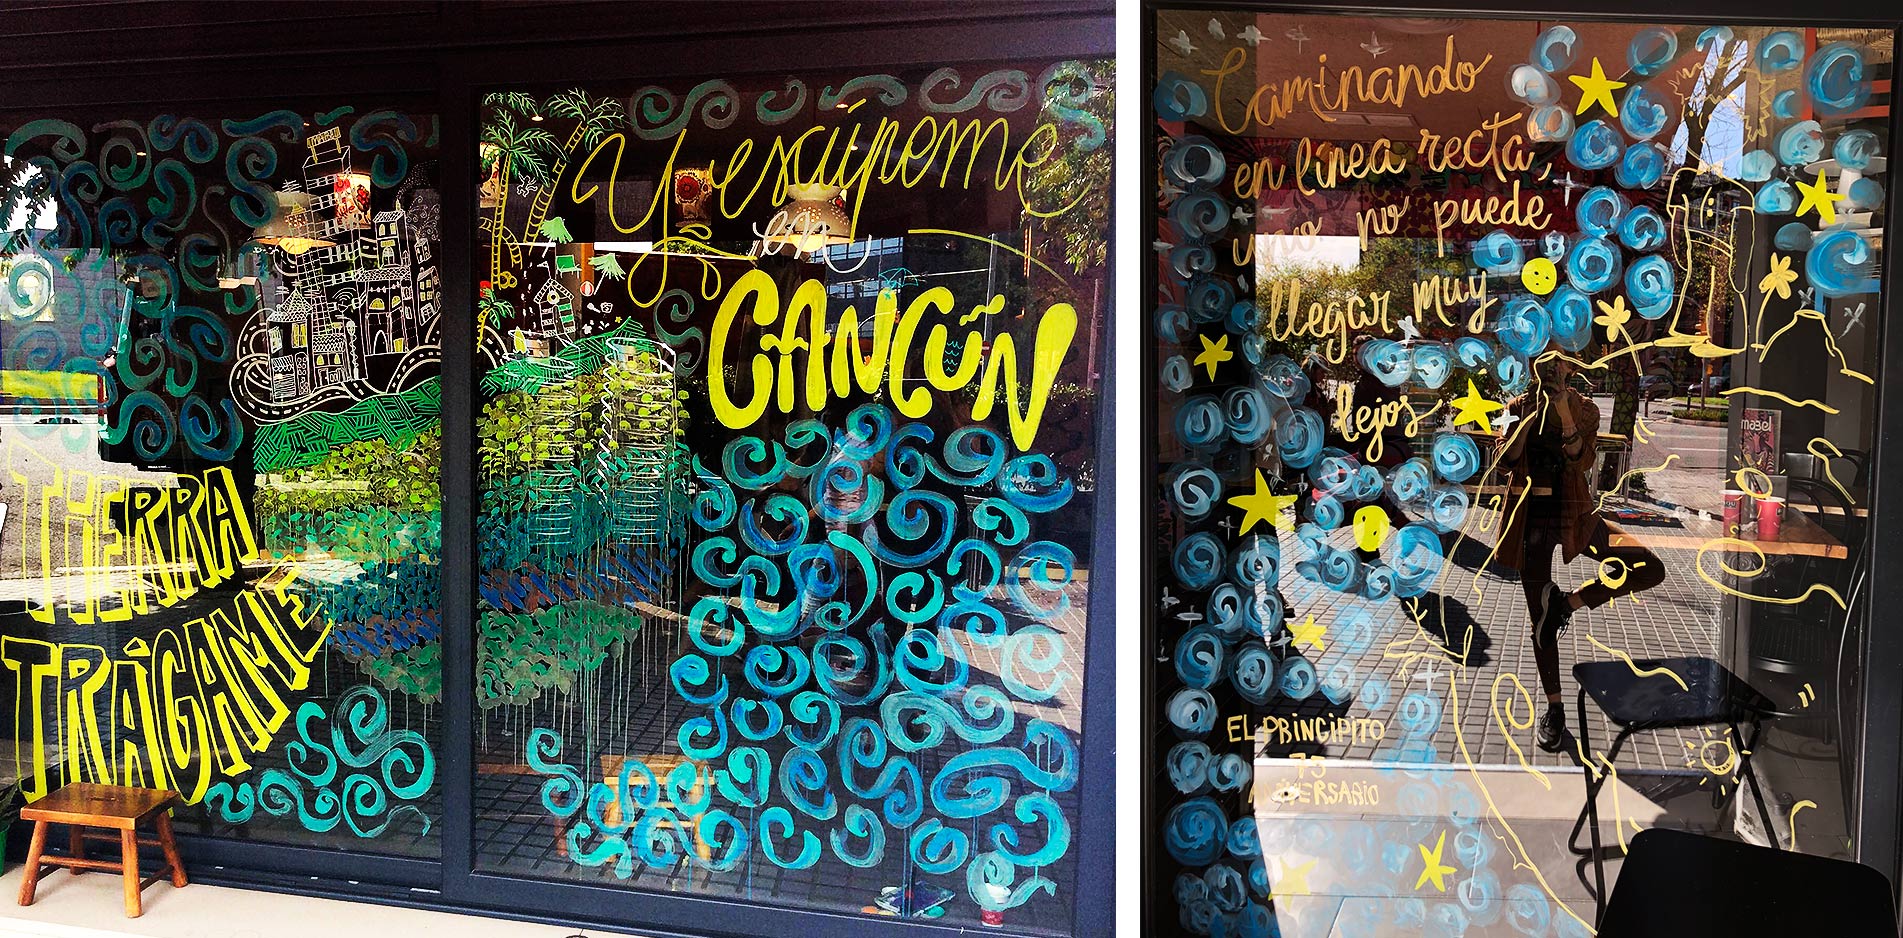 TiERRA
TRÁGAME
Y escúpeme
en
CANCÚN
Caminando
en línea recta,
uno no puede
llegar muy
lejos
EL PRINCIPITO
75
ANIVERSARIO